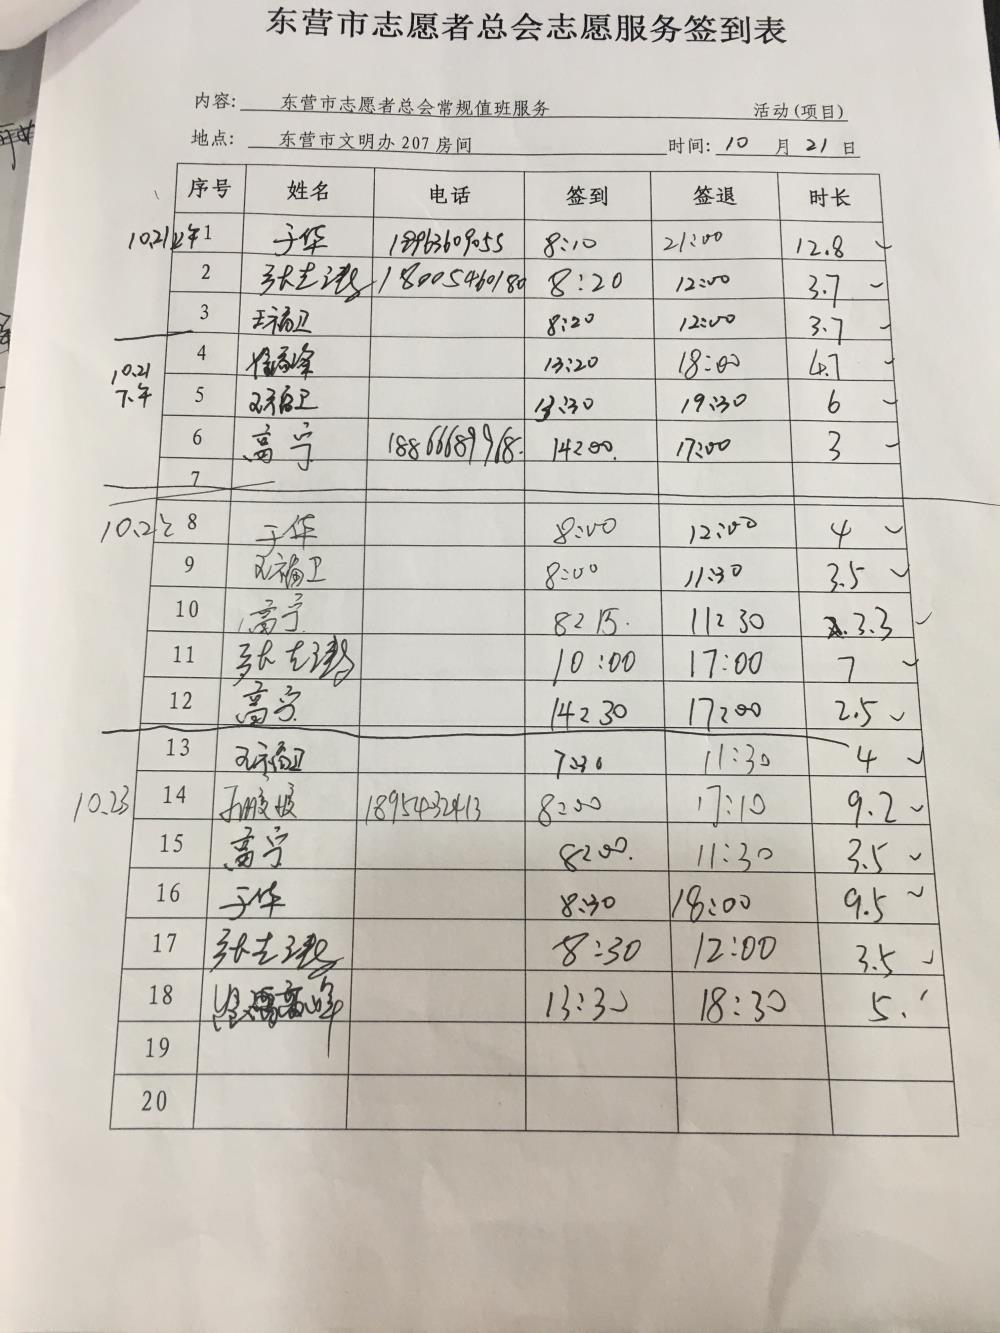 东营市志愿者总会志愿服务签到表
内容: 东营市志愿者总会常规值班服务 活动(项目)
地点: 东营市文明办207房间 时间: 10 月 21 日
序号 姓名 电话 签到 签退 时长
10.21上午 1 于华 18963609055 8:10 21:00 12.8
2 18005460180 8:20 12:00 3.7
3 王福卫 8:20 12:00 3.7
10.21
下午
4 13:20 18:00 4.7
5 王福卫 13:30 19:30 6
6 高宁 18866689968 14:00 17:00 3
7
10.22 8 于华 8:00 12:00 4
9 王福卫 8:00 11:30 3.5
10 高宁 8:15 11:30 3.3
11 10:00 17:00 7
12 高宁 14:30 17:00 2.5
13 王福卫 7:30 11:30 4
10.23 14 18954632413 8:00 17:10 9.2
15 高宁 8:00 11:30 3.5
16 于华 8:30 18:00 9.5
17 8:30 12:00 3.5
18 13:30 18:30 5
19
20